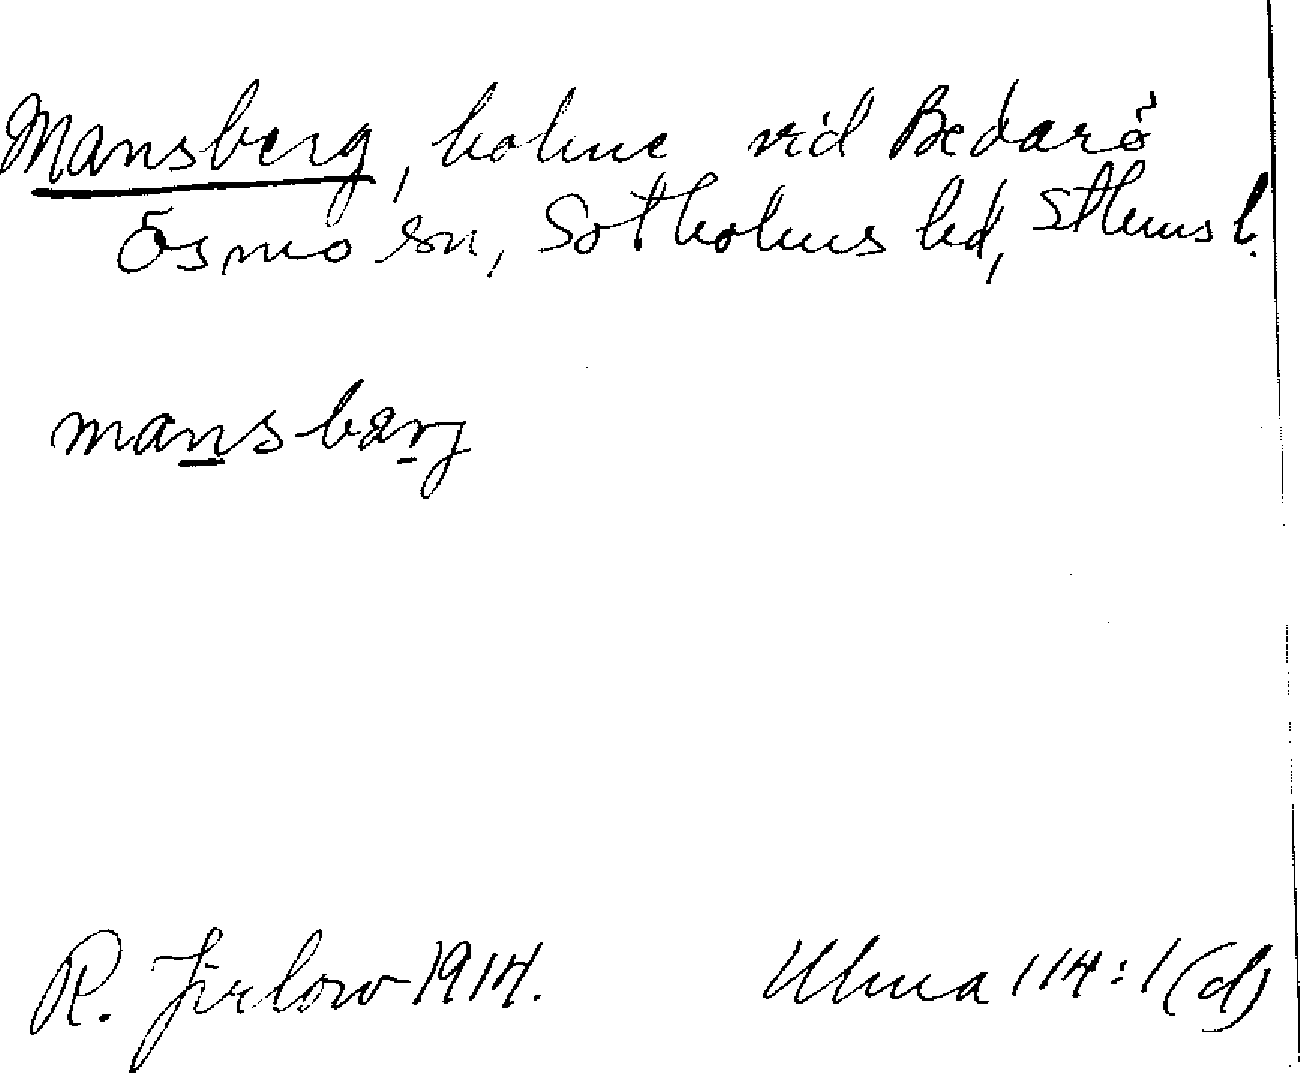 Mansberg, holme vid Bedarö
Ösmo sn, Sotholms hd, Sthms l.
mansbärj
R. Jirlow 1914.
Ulma 114:1 (d)